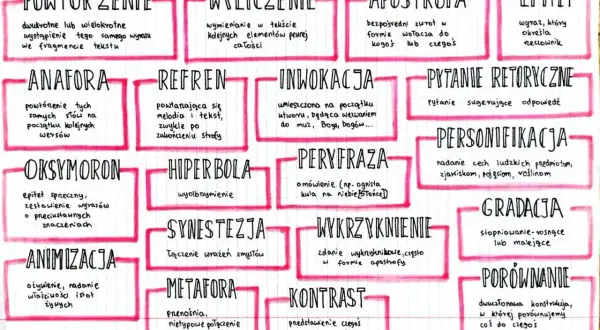 POWTÓRZENIE
dwukrotne lub wielokrotne
wystąpienie tego samego wyrazu
we fragmencie tekstu
WYLICZENIE
wymienianie w tekście
kolejnych elementów pewnej
całości
APOSTROFA
bezpośredni zwrot w
formie wołacza do
kogoś lub czegoś
EPITET
wyraz, który
określa
rzeczownik
ANAFORA
powtórzenie tych
samych słów na
początku kolejnych
wersów
REFREN
powtarzająca się
melodia i tekst,
zwykle po
zakończeniu strofy
INWOKACJA
umieszczona na początku
utworu, będąca wezwaniem
do muz, Boga, bogów...
PYTANIE RETORYCZNE
pytanie sugerujące odpowiedź
PERSONIFIKACJA
nadanie cech ludzkich przedmiotom,
zjawiskom, pojęciom, roślinom
OKSYMORON
epitet sprzeczny,
zestawienie wyrazów
o przeciwstawnych
znaczeniach
HIPERBOLA
wyolbrzymienie
PERYFRAZA
omówienie (np. ognista
kula na niebie [słońce])
GRADACJA
stopniowanie - rosnące
lub malejące
SYNESTEZJA
łączenie wrażeń zmysłów
WYKRZYKNIENIE
zdanie wykrzyknikowe, często
w formie apostrofy
ANIMIZACJA
ożywienie, nadanie
właściwości istot
żywych
METAFORA
przenośnia,
nietypowe połączenie
KONTRAST
przedstawienie czegoś
PORÓWNANIE
dwuczłonowa konstrukcja,
w której porównujemy
coś do czegoś